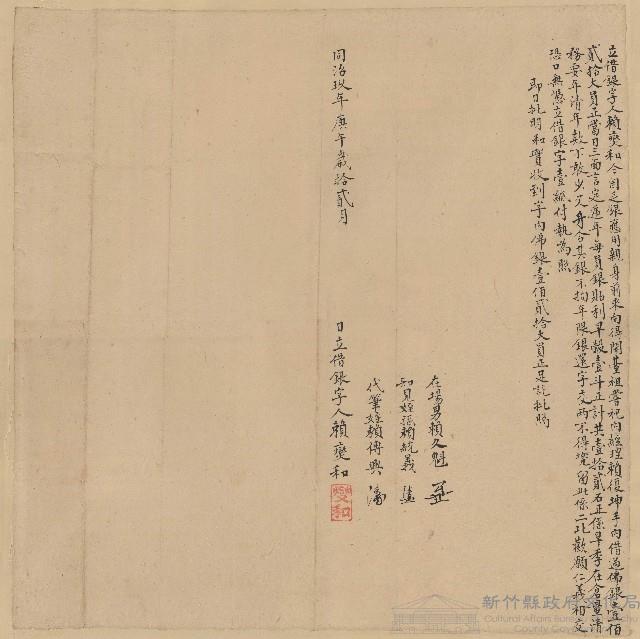 立借銀字人賴燮和今因乏銀應用親身前來向得開臺祖嘗祀內經理賴復坤手內借過佛銀壹佰
貳拾大員正當日三面言定遞年每員銀貼利早穀壹斗正計共壹拾貳石正係早季在倉量清
務要年清年款不敢少欠升合其銀不拘年限銀還字交兩不得刁留此係二比歡願仁義相交
恐口無憑立借銀字壹紙付執為照
即日批明和實收到字內佛銀壹佰貳拾大員正足訖批照
在場男賴久魁
知見姪孫賴統義
代筆姪賴傳興
同治玖年庚午歲拾貳月 日立借銀字人賴燮和
燮和
新竹縣政府文化局
Cultural Affairs Bureau of Hsinchu
County Government